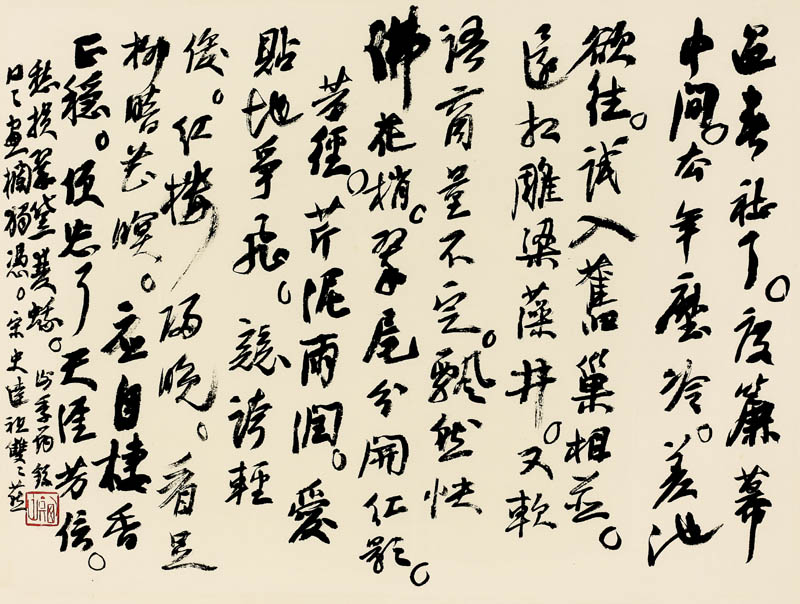 過春社了。度簾幕
中間。去年塵冷。差池
欲住。試入舊巢相並。
還相雕梁藻井。又軟
語商量不定。飄然快
拂花梢。翠尾分開紅影。
芳徑。芹泥雨潤。愛
貼地爭飛。競誇輕
俊。紅樓歸晚。看足
柳暗花暝。應自棲香
正穩。便忘了天涯芳信。
愁損翠黛雙蛾。
日々畫欄獨憑。宋史達祖雙々燕